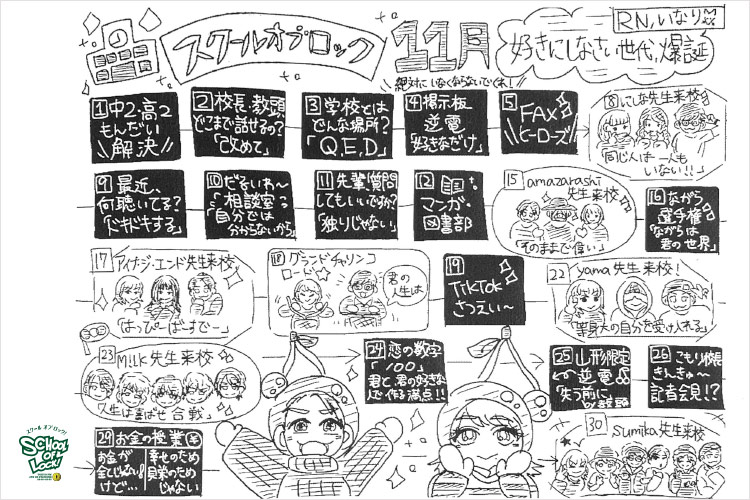 スクールオブロック
11月
RN,いなりMx
好きにしなさい世代,爆誕
絶対にいなくならないでくれ!
1 中2・高2
もんだい
解決
2 校長、教頭
どこまで話せるの?
「改めて」
3 学校とは
どんな場所?
「Q.E.D」
4 掲示板
逆電
「好きなだけ」
5 FAX
ヒーローズ
8 にしな先生来校
「同じ人は一人も
いない!!」
9 最近、
何聴いてる?
「ドキドキする」
10 だるいわ〜
「相談室」
「自分では
分からないから」
11 先輩、質問
してもいいですか?
「独りじゃない」
12
マンガ・
図書部
15 amazarashi
先生来校
「そのままで偉い」
16 ながら
選手権
「ながらは
君の世界」
17 アイナ・ジ・エンド先生来校
「はっぴーばーすでー」
18 グランドチャリンコ
ロード
君の
人生は
19
TikTok
さつえい〜
22 yama先生来校!
「等身大の自分を受け入れる」
23 M!LK先生来校
「人生は喜ばせ合戦」
24 恋の数字
「100」
君と君の好きな
人で作る満点!!
25 山形限定
逆電
「失う前に
by 校長」
26 こもり校長
きんきゅ〜
記者会見!?
29 お金の授業
お金が
全てじゃない!
けど…
幸せのため
見栄のため
じゃない
30 sumika先生来校
スクールオブロック!
SCHOOL
OF
LOCK!